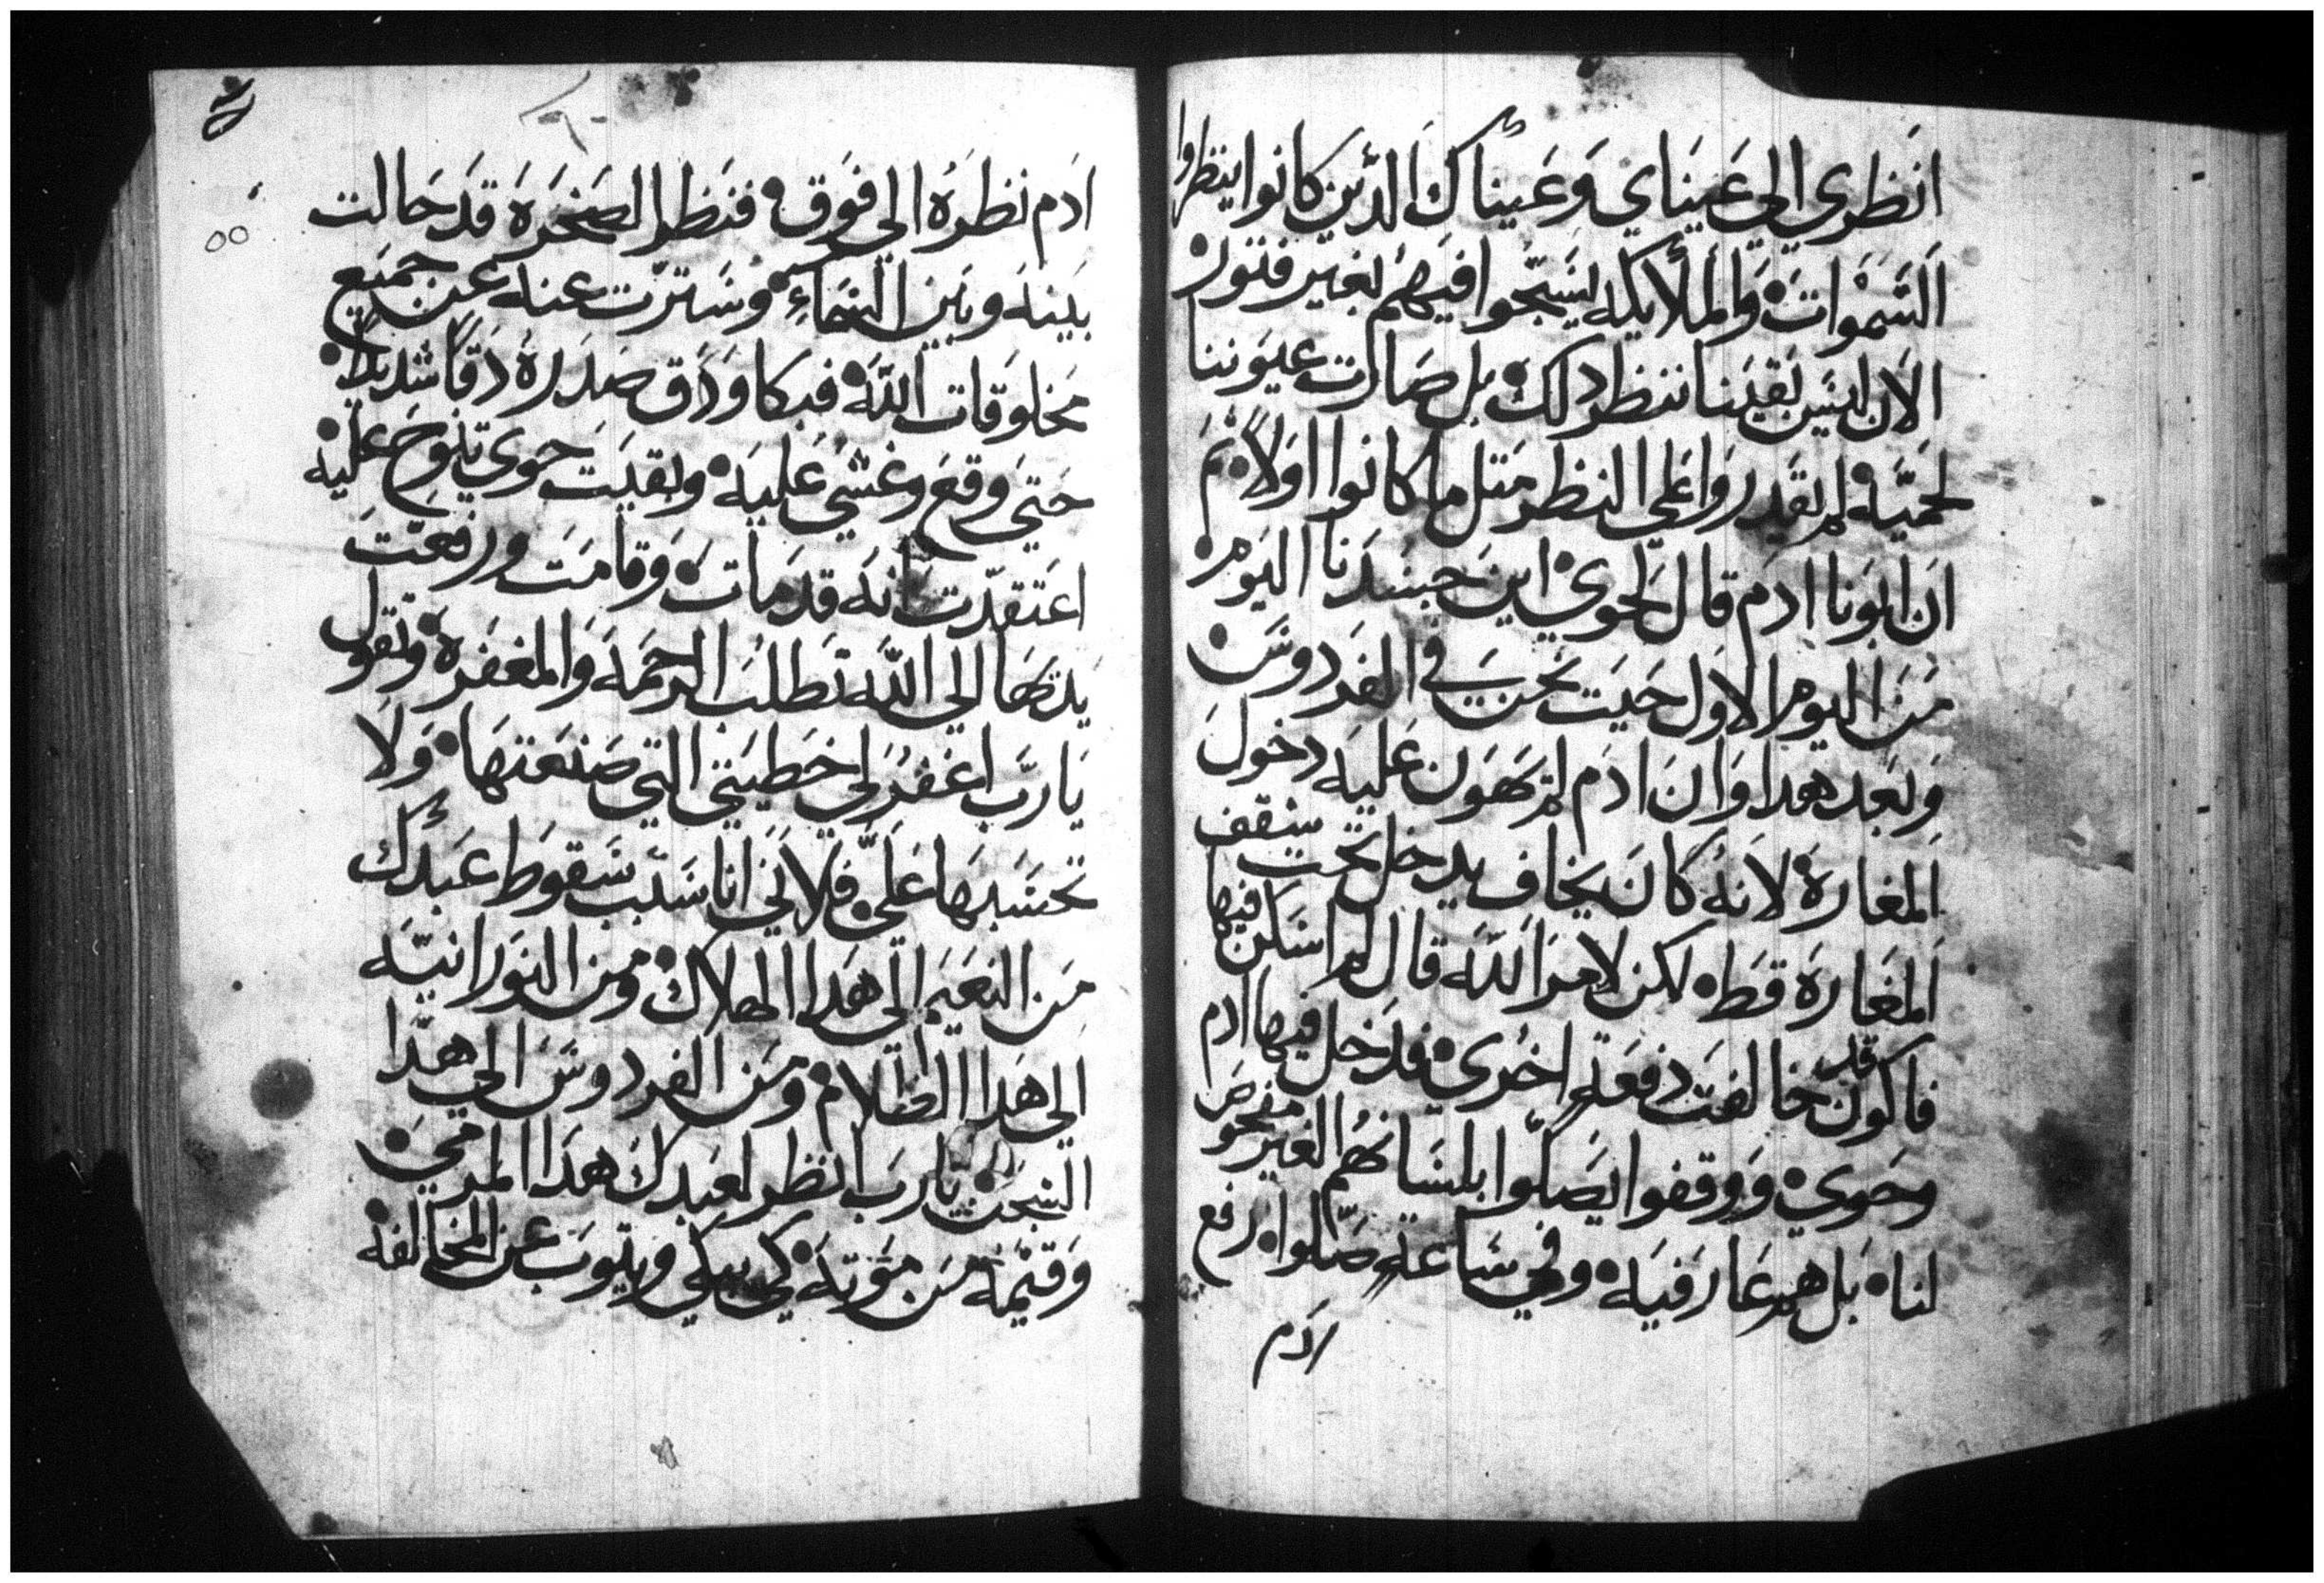 انظري الي عيناي وعيناك الدين كانوا ينظروا
السموات والملايكه يسبحوا فيهم بغير فتور
الان ليس بقينا ننظر دلك بل صارت عيوننا
لحميه لم يقدروا علي النظر متل ما كانوا اولا تم
ان ابونا ادم قال لحوي اين جسدنا اليوم
من اليوم الاول حيت نحن في الفردوس
وبعد هدا وان ادم لم تهون عليه دخول
المغارة لانه كان يخاف يدخل تحت سقف
المغارة قط لكن لامر الله قال لم اسكن فيها
فاكون قد خالفت دفعه اخري فدخل فيها ادم
وحوي ووقفوا يصلوا بلسانهم الغير مفحوص
لنا بل هم عارفيه وفي ساعه صلوا رفع
ادم
ادم نظره الي فوق فنظر الصخرة قد حالت
بينه وبين السماء وسترت عنه عن جميع
مخلوقات الله فبكا ودق صدره دقا شديدا
حتي وقع وغشي عليه وبقيت حوي تنوح عليه
اعتقدت انه قد مات وقامت ورفعت
يديها الي الله تطلب الرحمه والمغفرة وتقول
يارب اغفر لي خطيتي التي صنعتها ولا
تحسبها علي فلاني انا سبب سقوط عبدك
من النعيم الي هدا الهلاك ومن النورانيه
الي هدا الظلام ومن الفردوس الي هدا
السجن يارب انظر لعبدك هدا المرمي
وقيمه من موته كي يبكي ويتوب عن المخالفه